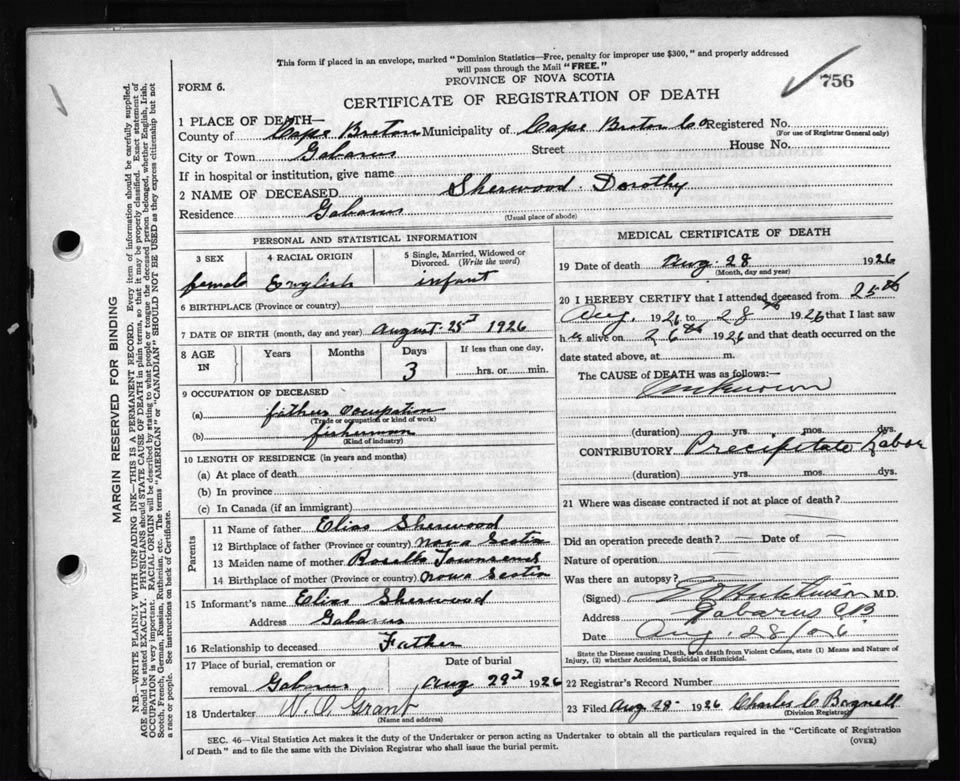 This form if placed in an envelope, marked "Dominion Statistics—Free, penalty for improper use $300," and properly addressed
will pass through the Mail "FREE."
PROVINCE OF NOVA SCOTIA
756
FORM 6.
CERTIFICATE OF REGISTRATION OF DEATH
1 PLACE OF DEATH—
County of Cape Breton Municipality of Cape Breton Co Registered No.
(For use of Registrar General only)
City or Town Gabarus Street House No.
If in hospital or institution, give name
2 NAME OF DECEASED Sherwood Dorothy
Residence Gabarus
(Usual place of abode)
PERSONAL AND STATISTICAL INFORMATION
3 SEX 4 RACIAL ORIGIN 5 Single, Married, Widowed or Divorced. (Write the word)
female English infant
6 BIRTHPLACE (Province or country)
7 DATE OF BIRTH (month, day and year) August 25th 1926
8 AGE IN Years Months Days If less than one day,
3 hrs. or min.
9 OCCUPATION OF DECEASED
(a) fathers occupation
(Trade or occupation or kind of work)
(b) fisherman
(Kind of industry)
10 LENGTH OF RESIDENCE (in years and months)
(a) At place of death
(b) In province
(c) In Canada (if an immigrant)
Parents
11 Name of father Elias Sherwood
12 Birthplace of father (Province or country) Nova Scotia
13 Maiden name of mother Townsend
14 Birthplace of mother (Province or country) Nova Scotia
15 Informant's name Elias Sherwood
Address Gabarus
16 Relationship to deceased Father
17 Place of burial, cremation or Date of burial
removal Gabarus Aug 29th 1926
18 Undertaker W. O. Grant
(Name and address)
MEDICAL CERTIFICATE OF DEATH
19 Date of death Aug. 28 1926
(Month, day and year)
20 I HEREBY CERTIFY that I attended deceased from 25th
Aug. 1926 to 28th 1926 that I last saw
h er alive on 26th 1926 and that death occurred on the
date stated above, at m.
The CAUSE of DEATH was as follows:—
Unknown
(duration) yrs. mos. dys.
CONTRIBUTORY Precipitate Labor
(duration) yrs. mos. dys.
21 Where was disease contracted if not at place of death?
Did an operation precede death? — Date of —
Nature of operation
Was there an autopsy?
(Signed) Hutchinson M.D.
Address Gabarus C B
Date Aug. 28/26
State the Disease causing Death, or in death from Violent Causes, state (1) Means and Nature of
Injury, (2) whether Accidental, Suicidal or Homicidal.
22 Registrar's Record Number
23 Filed Aug 28 1926 Charles C Bagnell
(Division Registrar)
SEC. 46—Vital Statistics Act makes it duty of the Undertaker or person acting as Undertaker to obtain all the particulars required in the "Certificate of Registration
of Death" and to file the same with the Division Registrar who shall issue the burial permit. (OVER)
MARGIN RESERVED FOR BINDING
N.B.—WRITE PLAINLY WITH UNFADING INK—THIS IS A PERMANENT RECORD. Every item of information should be carefully supplied.
AGE should be stated EXACTLY. PHYSICIANS should STATE CAUSE OF DEATH in plain terms, so that it may be properly classified. Exact statement of
OCCUPATION is very important. RACIAL ORIGIN will be described by stating to what people or tongue the deceased person belonged, whether English, Irish,
Scotch, French, German, Russian, Ruthenian, etc. The terms "AMERICAN" or "CANADIAN" SHOULD NOT BE USED as they express citizenship but not
a race or people. See instructions on back of Certificate.